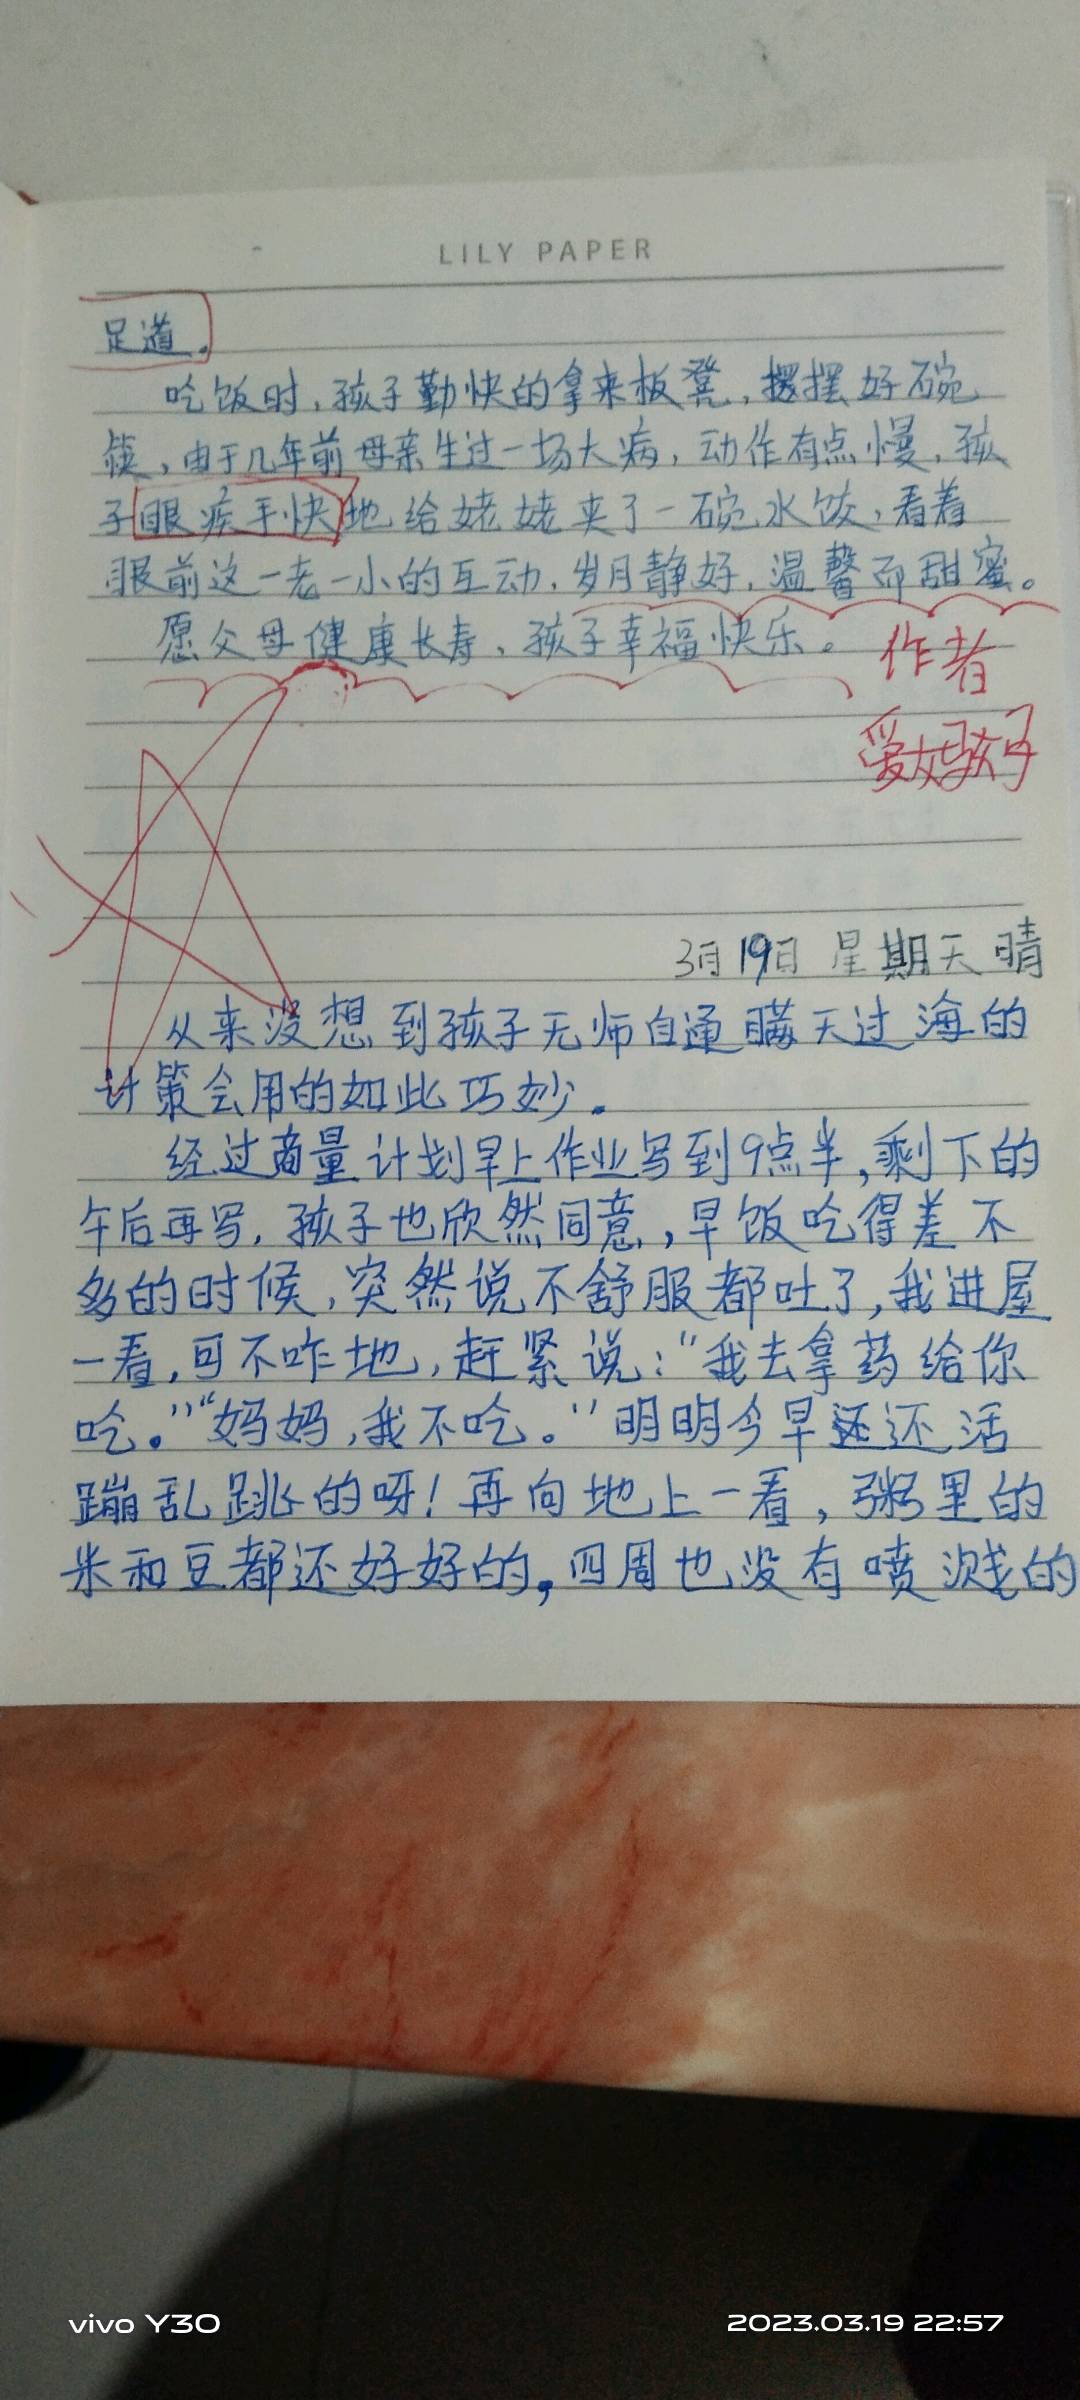 LILY PAPER
足道。
吃饭时,孩子勤快的拿来板凳,摆摆好碗
筷,由于几年前母亲生过一场大病,动作有点慢,孩
子眼疾手快地给姥姥夹了一碗水饺,看着
眼前这一老一小的互动,岁月静好,温馨而甜蜜。
愿父母健康长寿、孩子幸福快乐。
作者
爱如孩子
3月19日 星期天 晴
从来没想到孩子无师自通瞒天过海的
计策会用的如此巧妙。
经过商量计划早上作业写到9点半,剩下的
午后再写,孩子也欣然同意,早饭吃得差不
多的时候,突然说不舒服都吐了,我进屋
一看,可不咋地,赶紧说:“我去拿药给你
吃。”“妈妈,我不吃。”明明今早还还活
蹦乱跳的呀!再向地上一看,粥里的
米和豆都还好好的,四周也没有喷溅的
vivo Y30
2023.03.19 22:57